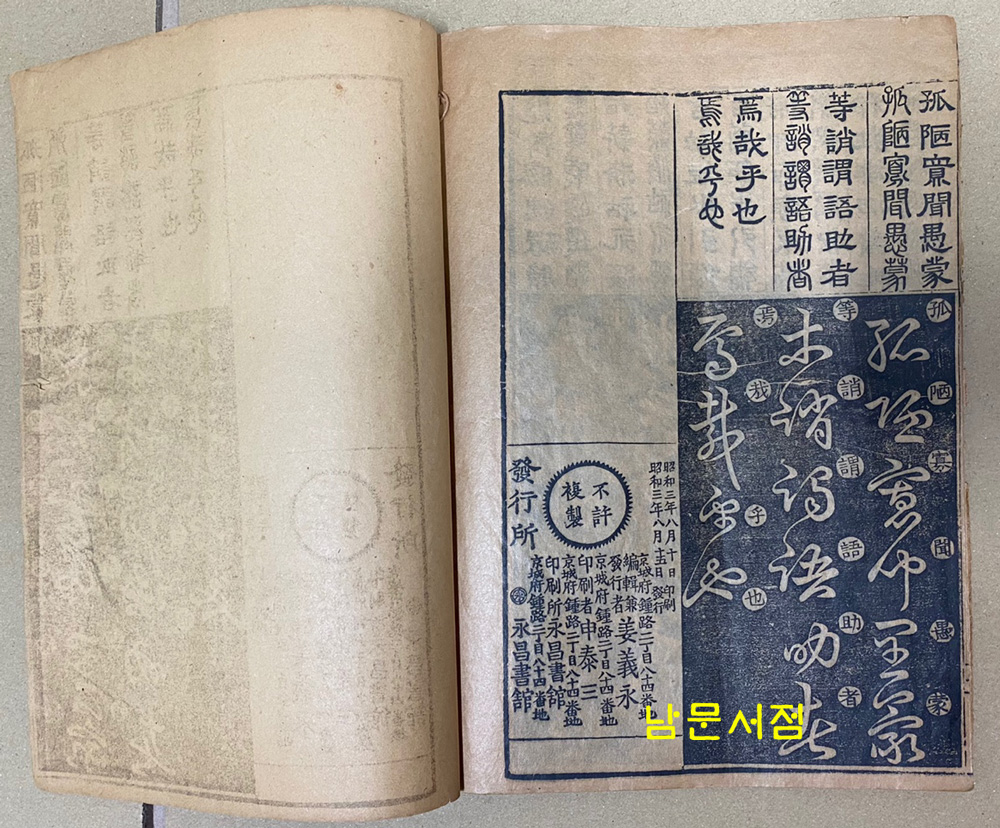 孤陋寡聞愚蒙
孤陋寡聞愚蒙
等誚謂語助者
等誚謂語助者
焉哉乎也
焉哉乎也
孤陋寡聞愚蒙
孤陋寡聞愚蒙
等誚謂語助者
等誚謂語助者
焉哉乎也
焉哉乎也
昭和三年八月十日 印刷
昭和三年八月十五日 發行
京城府鍾路二丁目八十四番地
編輯兼發行者 姜義永
京城府鍾路二丁目八十四番地
印刷者 申泰三
京城府鍾路二丁目八十四番地
印刷所 永昌書舘
京城府鍾路二丁目八十四番地
不許複製
發行所 永昌書舘
남문서점